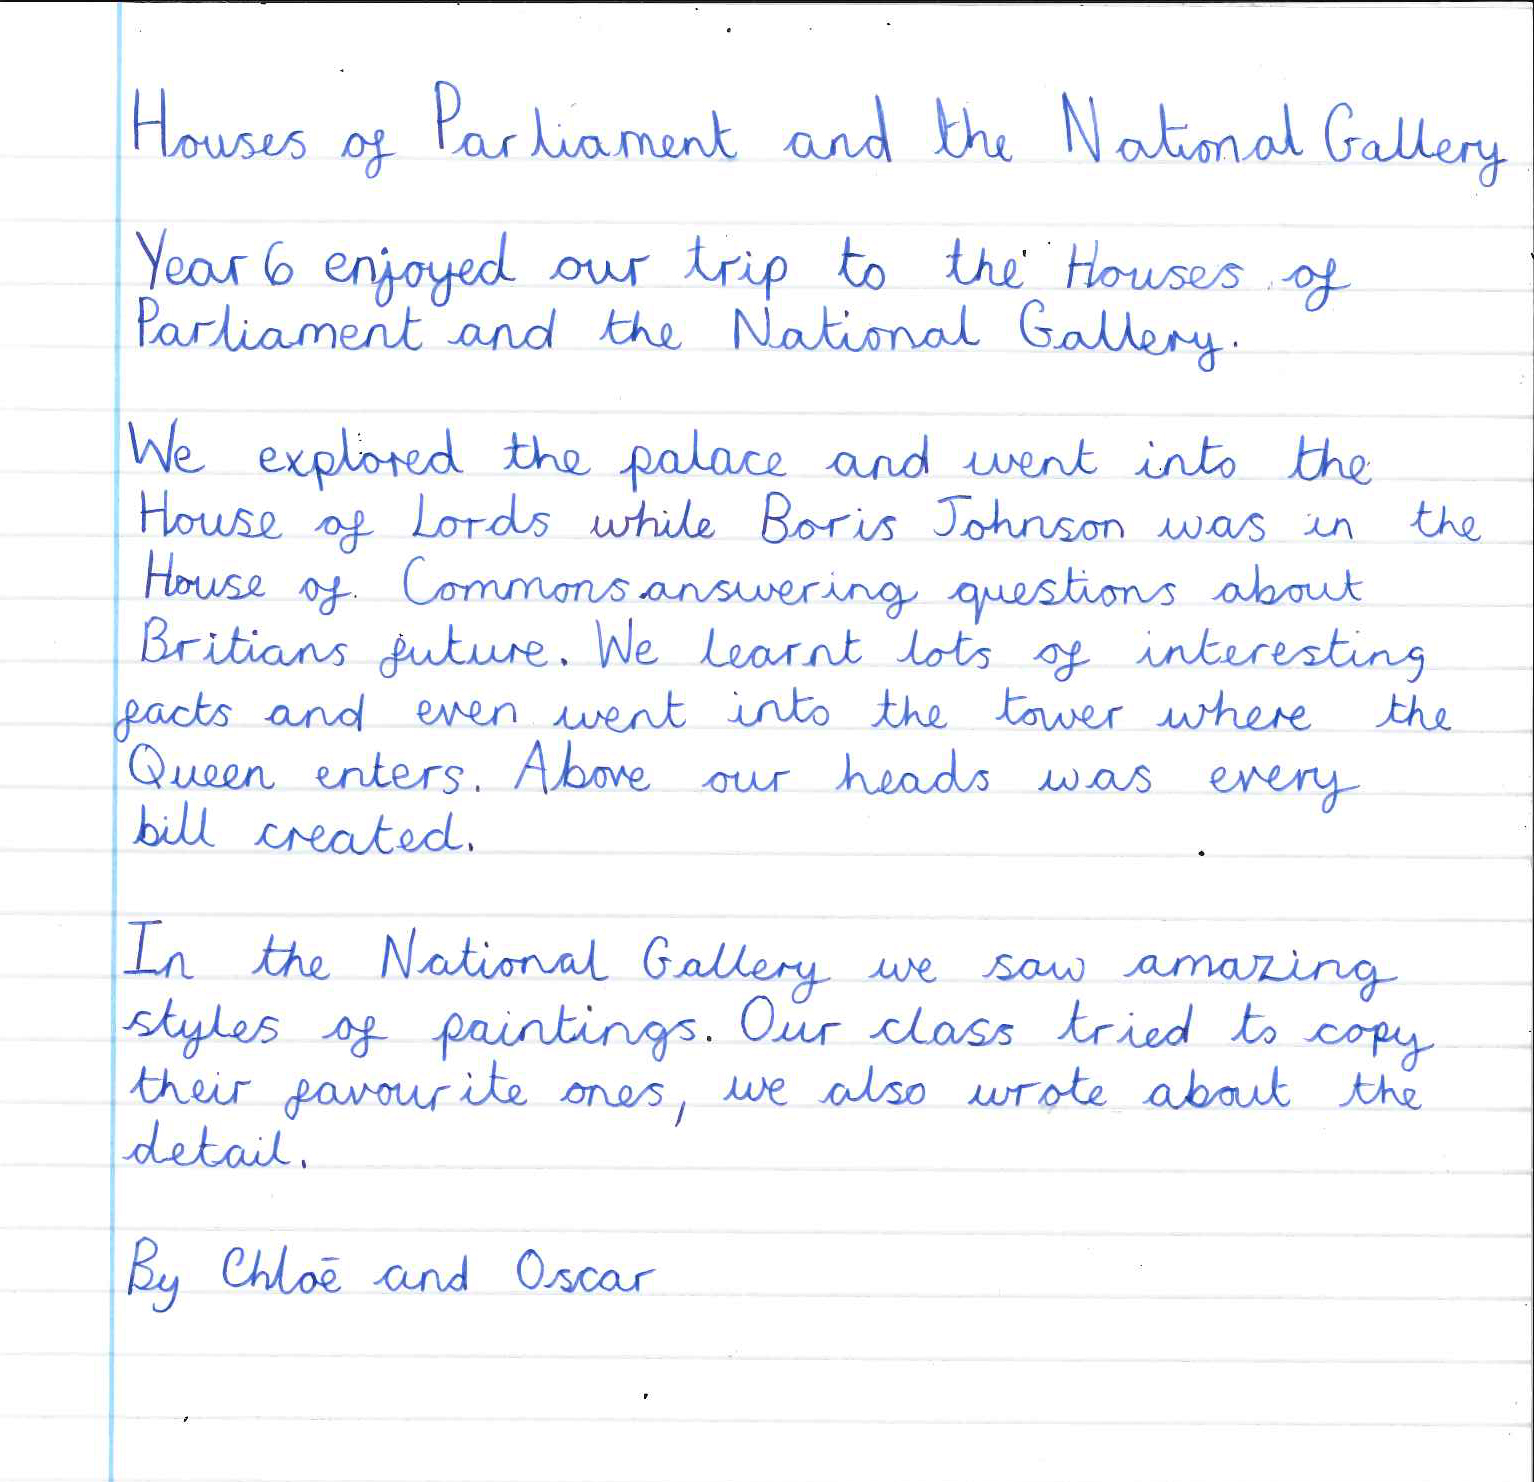 Houses of Parliament and the National Gallery
Year 6 enjoyed our trip to the Houses of
Parliament and the National Gallery.
We explored the palace and went into the
House of Lords while Boris Johnson was in the
House of Commons answering questions about
Britians future. We learnt lots of interesting
facts and even went into the tower where the
Queen enters. Above our heads was every
bill created.
In the National Gallery we saw amazing
styles of paintings. Our class tried to copy
their favourite ones, we also wrote about the
detail.
By Chloē and Oscar